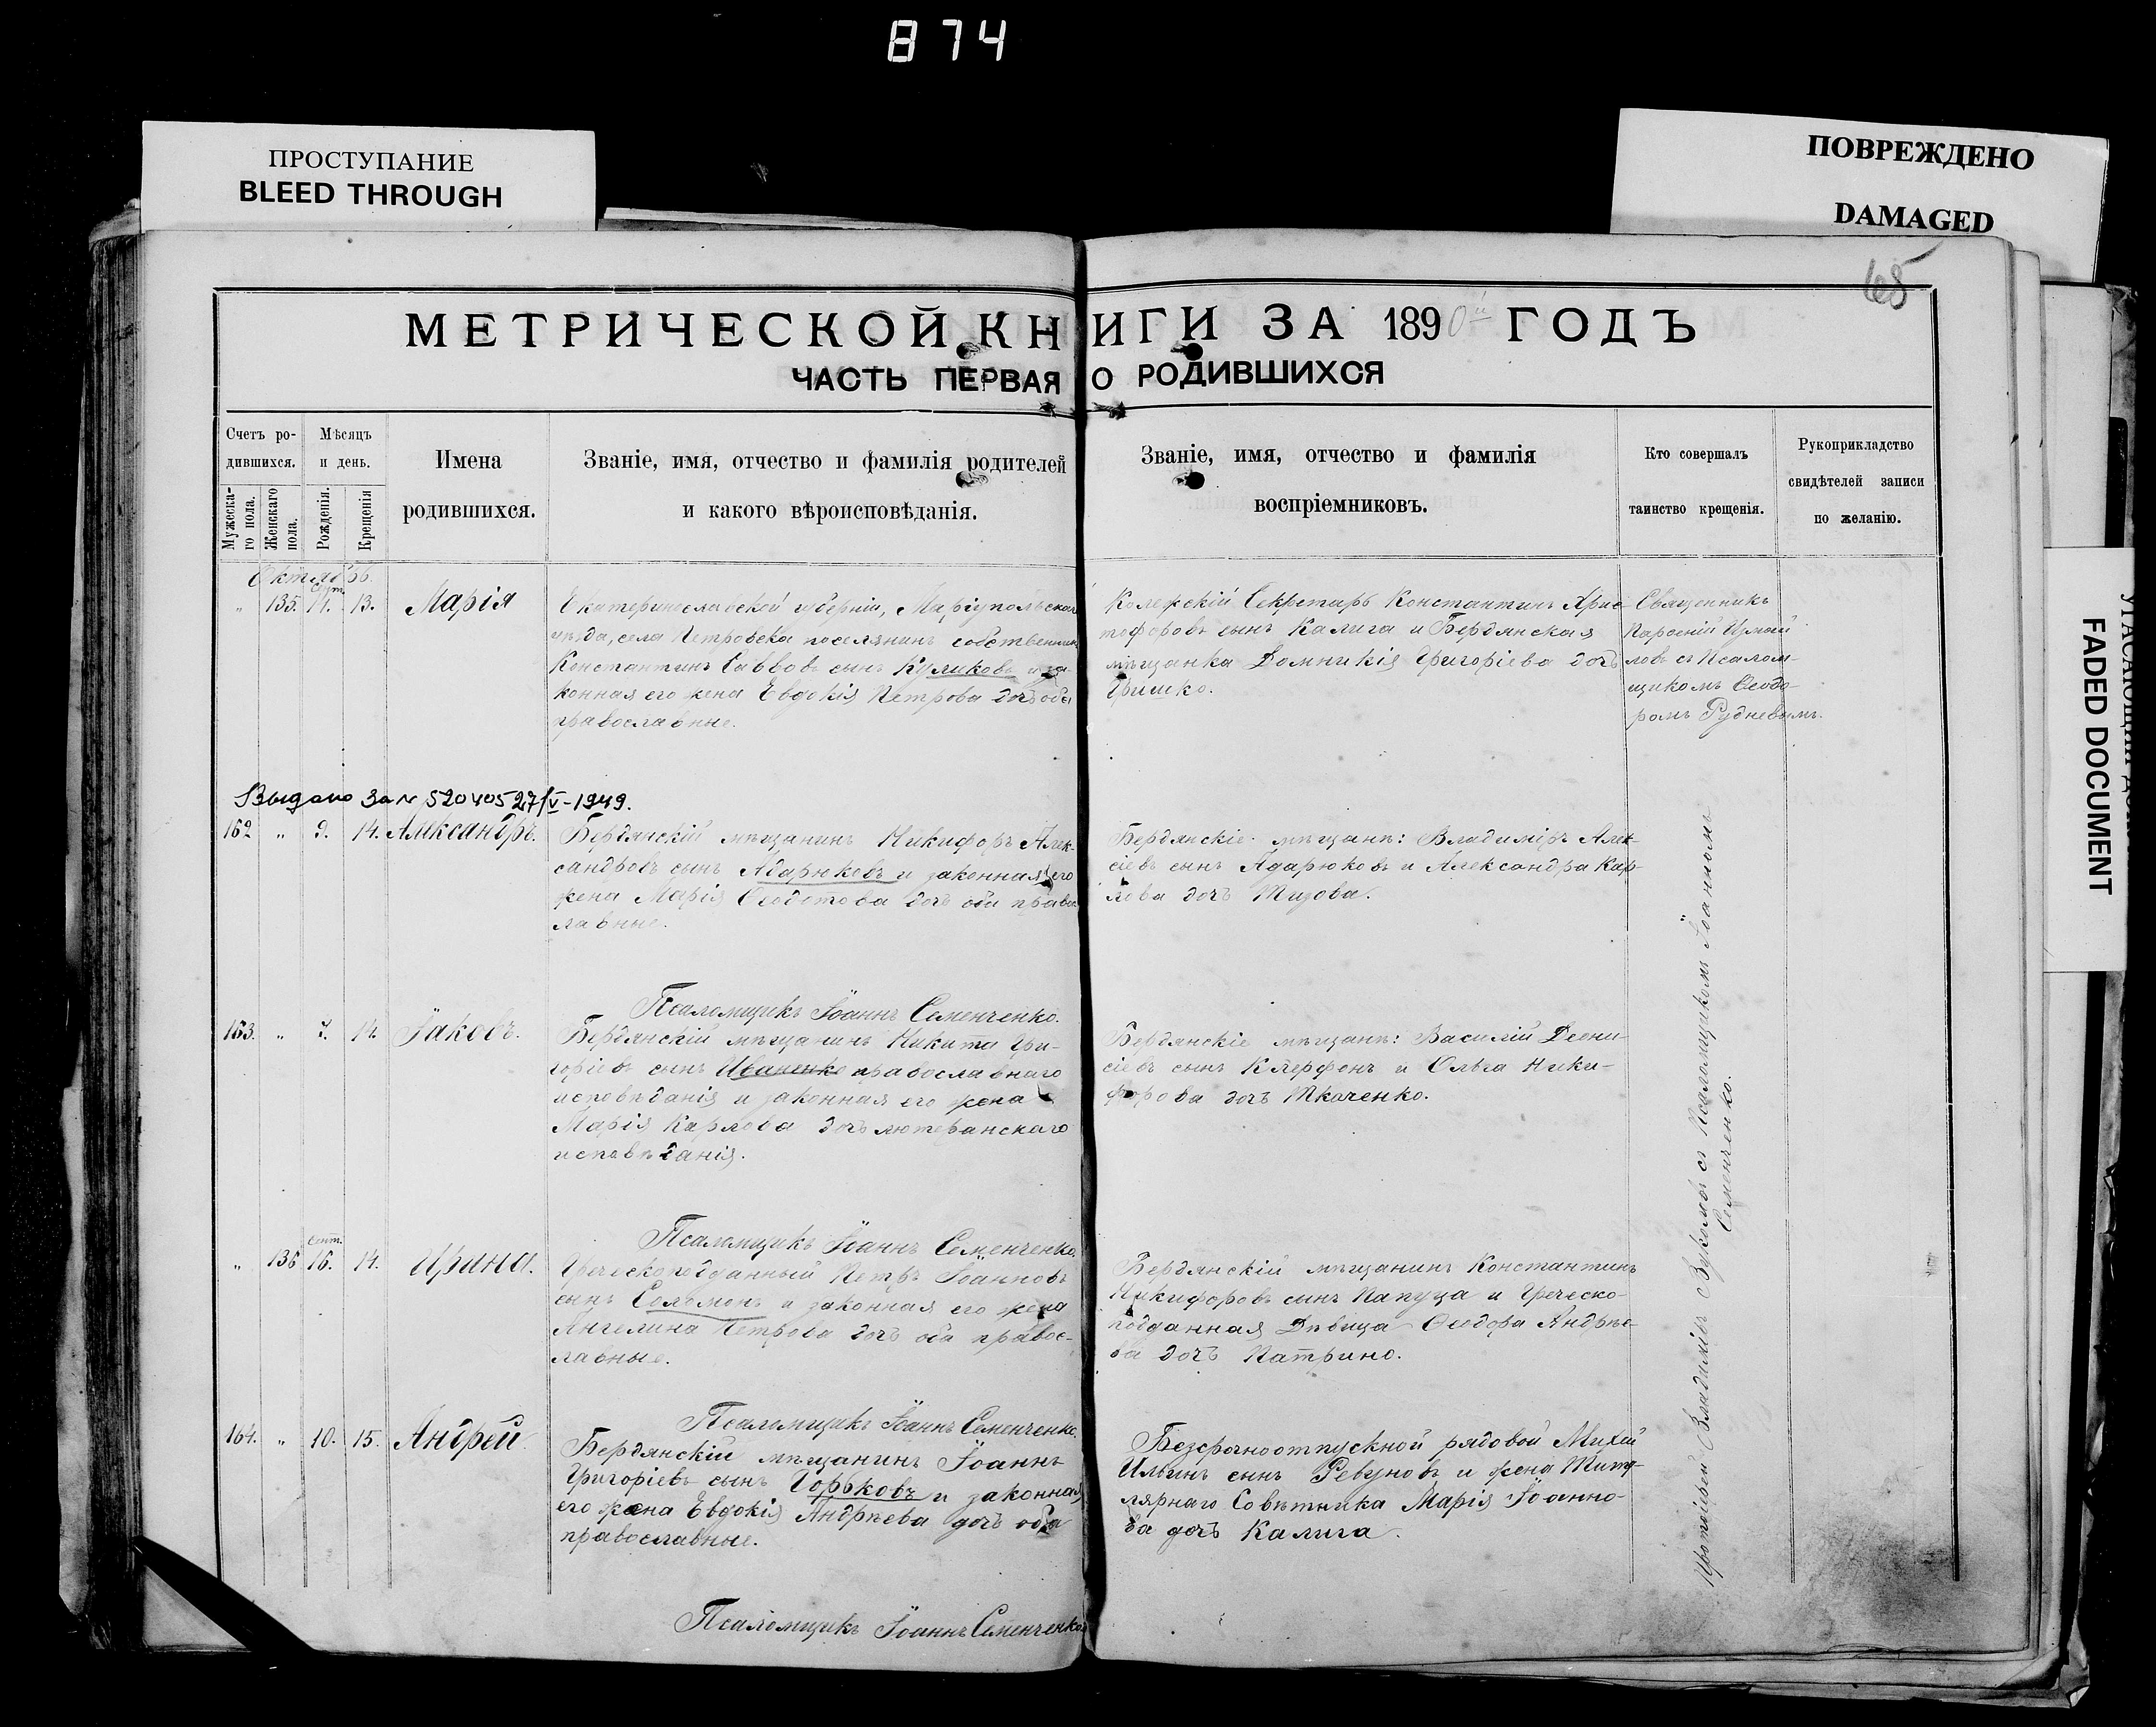 874
ПРОСТУПАНИЕ
BLEED THROUGH
ПОВРЕЖДЕНО
DAMAGED
FADED DOCUMENT
65
МЕТРИЧЕСКОЙ КНИГИ ЗА 1890й ГОДЪ
ЧАСТЬ ПЕРВАЯ О РОДИВШИХСЯ
Счетъ ро-
дившихся.
Мужеска-
го пола.
Женскаго
пола.
Мѣсяцъ
и день.
Рожденія.
Крещенія
Имена
родившихся.
Званіе, имя, отчество и фамилія родителей
и какого вѣроисповѣданія.
Званіе, имя, отчество и фамилія
воспріемниковъ.
Кто совершалъ
таинство крещенія.
Рукоприкладство
свидѣтелей записи
по желанію.
Октябрь.
Сент.
„ 135. 11. 13. Марія
Екатеринославской губерніи, Маріупольскаго
уѣзда, села Петровска поселянинъ собственникъ
Константинъ Саввовъ сынъ Куликовъ и за-
конная его жена Евдокія Петрова дочь оба
православные.
Колежскій Секретарь Константинъ Хрис-
тофоровъ сынъ Калига и Бердянская
мѣщанка Домникія Григоріева дочь
Гришко.
Священникъ
ловъ съ Псалом-
щикомъ Ѳеодо-
ромъ Рудневымъ.
Выдано за № 520405 27/V-1949.
162 „ 9. 14. Александръ.
Бердянскій мѣщанинъ Никифоръ Алек-
сандровъ сынъ Адарюковъ и законная его
жена Марія Ѳеодотова дочь оба правос-
лавные.
Бердянскіе мѣщане: Владиміръ Алек-
сіевъ сынъ Адарюковъ и Александра Кар-
пова дочь Тизова.
Псаломщикъ Іоаннъ Семенченко.
163. „ 7. 14. Іаковъ.
Бердянскій мѣщанинъ Никита Гри-
горіевъ сынъ Иваненко православнаго
исповѣданія и законная его жена
Марія Карлова дочь лютеранскаго
исповѣданія.
Бердянскіе мѣщане: Василій Деони-
сіевъ сынъ Клерфонъ и Ольга Ники-
форова дочь Ткаченко.
Псаломщикъ Іоаннъ Семенченко.
Сент.
„ 136 16. 14. Ирина.
Греческоподданный Петръ Іоанновъ
сынъ Соломонъ и законная его жена
Ангелина Петрова дочь оба правос-
лавные.
Бердянскій мѣщанинъ Константинъ
Никифоровъ сынъ Папуца и Греческо-
подданная Дѣвица Ѳеодора Андрѣе-
ва дочь Патрино.
Псаломщикъ Іоаннъ Семенченко.
164. „ 10. 15. Андрей.
Бердянскій мѣщанинъ Іоаннъ
Григоріевъ сынъ Горьковъ и законная
его жена Евдокія Андрѣева дочь оба
православные.
Безсрочноотпускной рядовой Михей
Ильинъ сынъ Ревуновъ и жена Титу-
лярнаго Совѣтника Марія Іоанно-
ва дочь Калига.
Псаломщикъ Іоаннъ Семенченко
Протоіерей Владиміръ Вукотовъ съ Псаломщикомъ Іоанномъ
Семенченко.